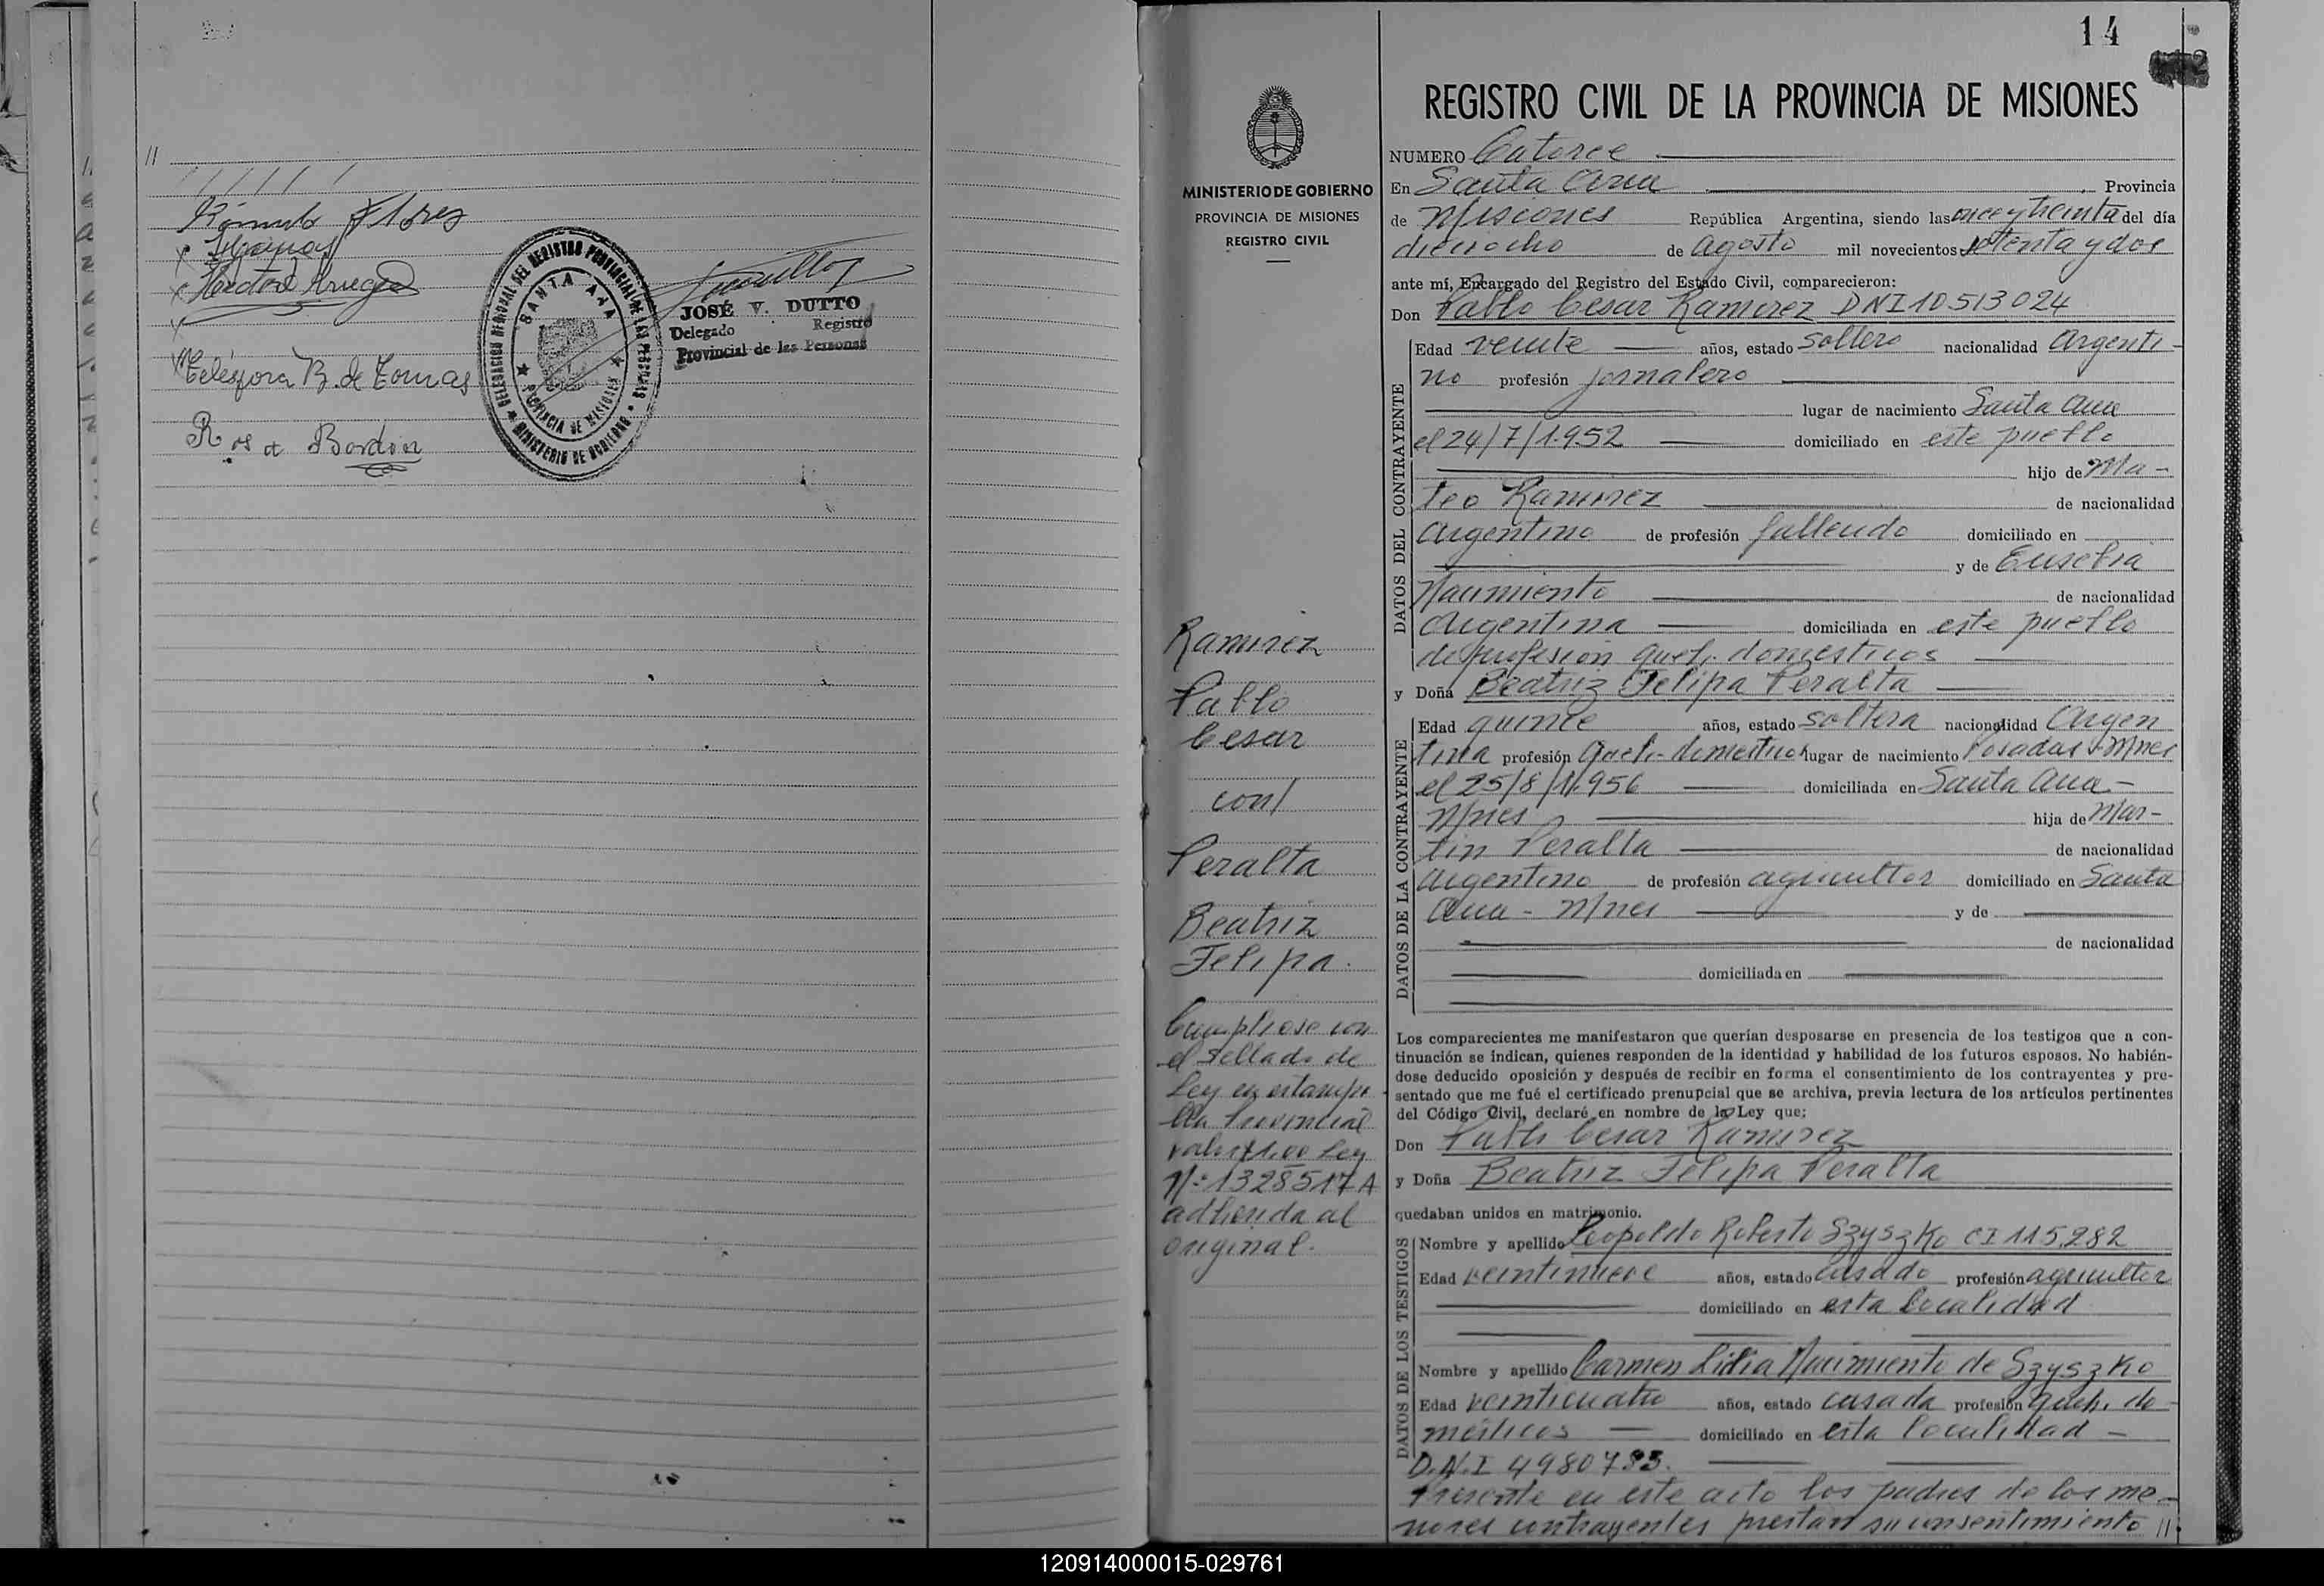 //
Rómulo Flores
Telésfora B. de Tomas
Rosa Bordón
DELEGACION REGIONAL DEL REGISTRO PROVINCIAL DE LAS PERSONAS
SANTA ANA
PROVINCIA DE MISIONES
MINISTERIO DE GOBIERNO
JOSÉ V. DUTTO
Delegado Registro
Provincial de las Personas
14
MINISTERIO DE GOBIERNO
PROVINCIA DE MISIONES
REGISTRO CIVIL
Ramirez
Pablo
Cesar
con/
Peralta
Beatriz
Felipa.
Cumpliose con
el sellado de
Ley en estampi
lla Provincial
valor $1.00 Ley
Nº 1328517 A
adherida al
original.
REGISTRO CIVIL DE LA PROVINCIA DE MISIONES
NUMERO Catorce
En Santa Ana Provincia
de Misiones República Argentina, siendo las once y treinta del día
dieciocho de agosto mil novecientos setenta y dos
ante mí, Encargado del Registro del Estado Civil, comparecieron:
Don Pablo Cesar Ramirez DNI 10513024
DATOS DEL CONTRAYENTE
Edad veinte años, estado soltero nacionalidad argenti-
no profesión jornalero
lugar de nacimiento Santa Ana
el 24/7/1.952 domiciliado en este pueblo
hijo de Ma-
teo Ramirez de nacionalidad
argentino de profesión fallecido domiciliado en
y de Eusebia
Nacimiento de nacionalidad
argentina domiciliada en este pueblo
de profesion queh. domesticos
y Doña Beatriz Felipa Peralta
DATOS DE LA CONTRAYENTE
Edad quince años, estado soltera nacionalidad argen
tina profesión queh. domesticos lugar de nacimiento Posadas-Mnes
el 25/8/1.956 domiciliada en Santa Ana-
Mnes hija de Mar-
tin Peralta de nacionalidad
argentino de profesión agricultor domiciliado en Santa
Ana - Mnes y de
de nacionalidad
domiciliada en
Los comparecientes me manifestaron que querían desposarse en presencia de los testigos que a con-
tinuación se indican, quienes responden de la identidad y habilidad de los futuros esposos. No habién-
dose deducido oposición y después de recibir en forma el consentimiento de los contrayentes y pre-
sentado que me fué el certificado prenupcial que se archiva, previa lectura de los artículos pertinentes
del Código Civil, declaré en nombre de la Ley que:
Don Pablo Cesar Ramirez
y Doña Beatriz Felipa Peralta
quedaban unidos en matrimonio.
DATOS DE LOS TESTIGOS
Nombre y apellido Leopoldo Roberto Szyszko CI 115.282
Edad veintinueve años, estado casado profesión agricultor
domiciliado en esta localidad
Nombre y apellido Carmen Lidia Nacimiento de Szyszko
Edad veinticuatro años, estado casada profesión queh. do-
mésticos domiciliado en esta localidad -
D.N.I 4980783.
Presente en este acto los padres de los me-
nores contrayentes prestan su consentimiento //
120914000015-029761